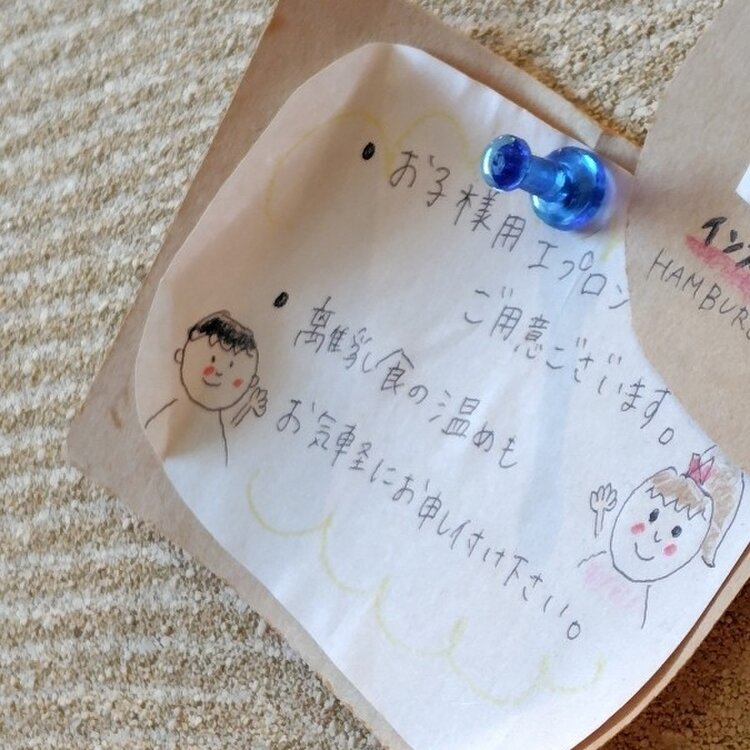 • お子様用エプロン
ご用意ございます。
• 離乳食の温めも
お気軽にお申し付け下さい。
イン
HAMBUR